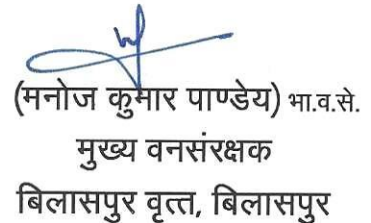 (मनोज कुमार पाण्डेय) भा.व.से.
मुख्य वनसंरक्षक
बिलासपुर वृत्त, बिलासपुर